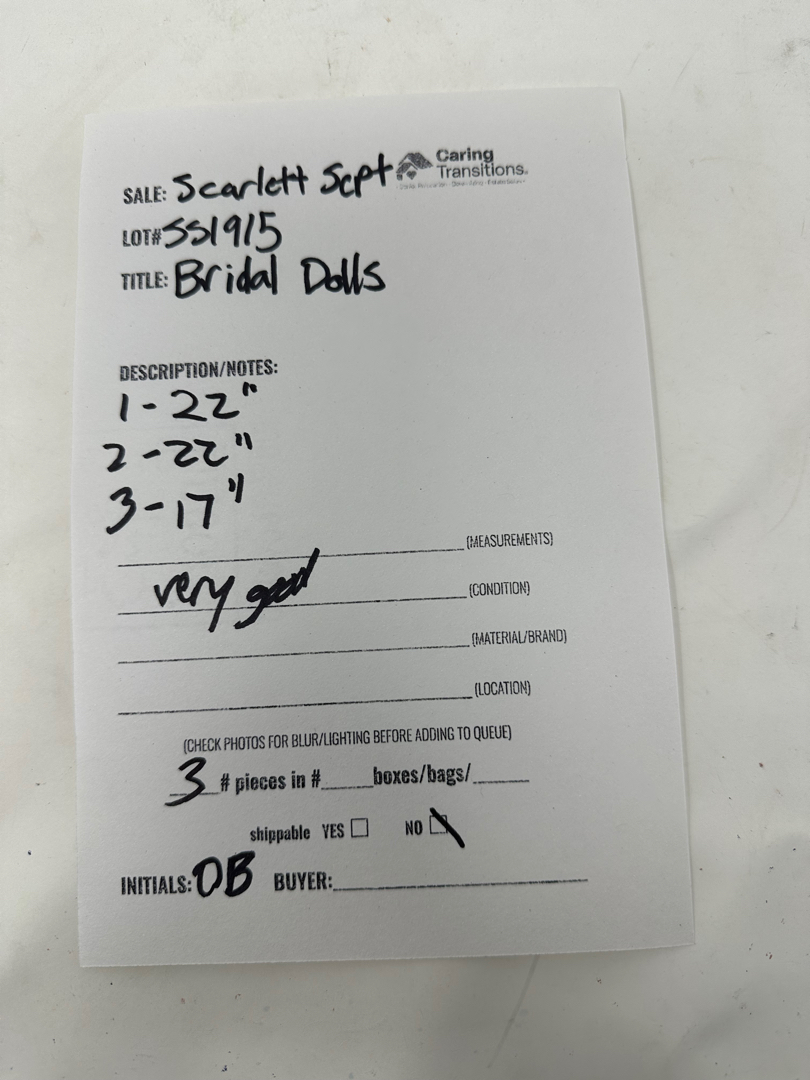 Caring
Transitions®
SALE: Scarlett Sept
LOT# SS1915
TITLE: Bridal Dolls
DESCRIPTION/NOTES:
1 - 22"
2 - 22"
3 - 17"
(MEASUREMENTS)
very good (CONDITION)
(MATERIAL/BRAND)
(LOCATION)
(CHECK PHOTOS FOR BLUR/LIGHTING BEFORE ADDING TO QUEUE)
3 # pieces in #____boxes/bags/____
shippable YES ☐ NO ☐
INITIALS: DB BUYER: